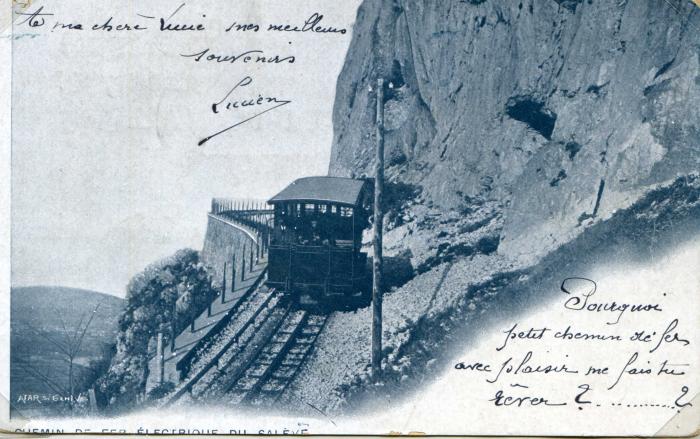 Te ma chère Lucie mes meilleurs
souvenirs
Lucien
Pourquoi
petit chemin de fer
avec plaisir me fais tu
rêver ? ......... ?
ATAR S.A. GENÈVE
CHEMIN DE FER ÉLECTRIQUE DU SALÈVE